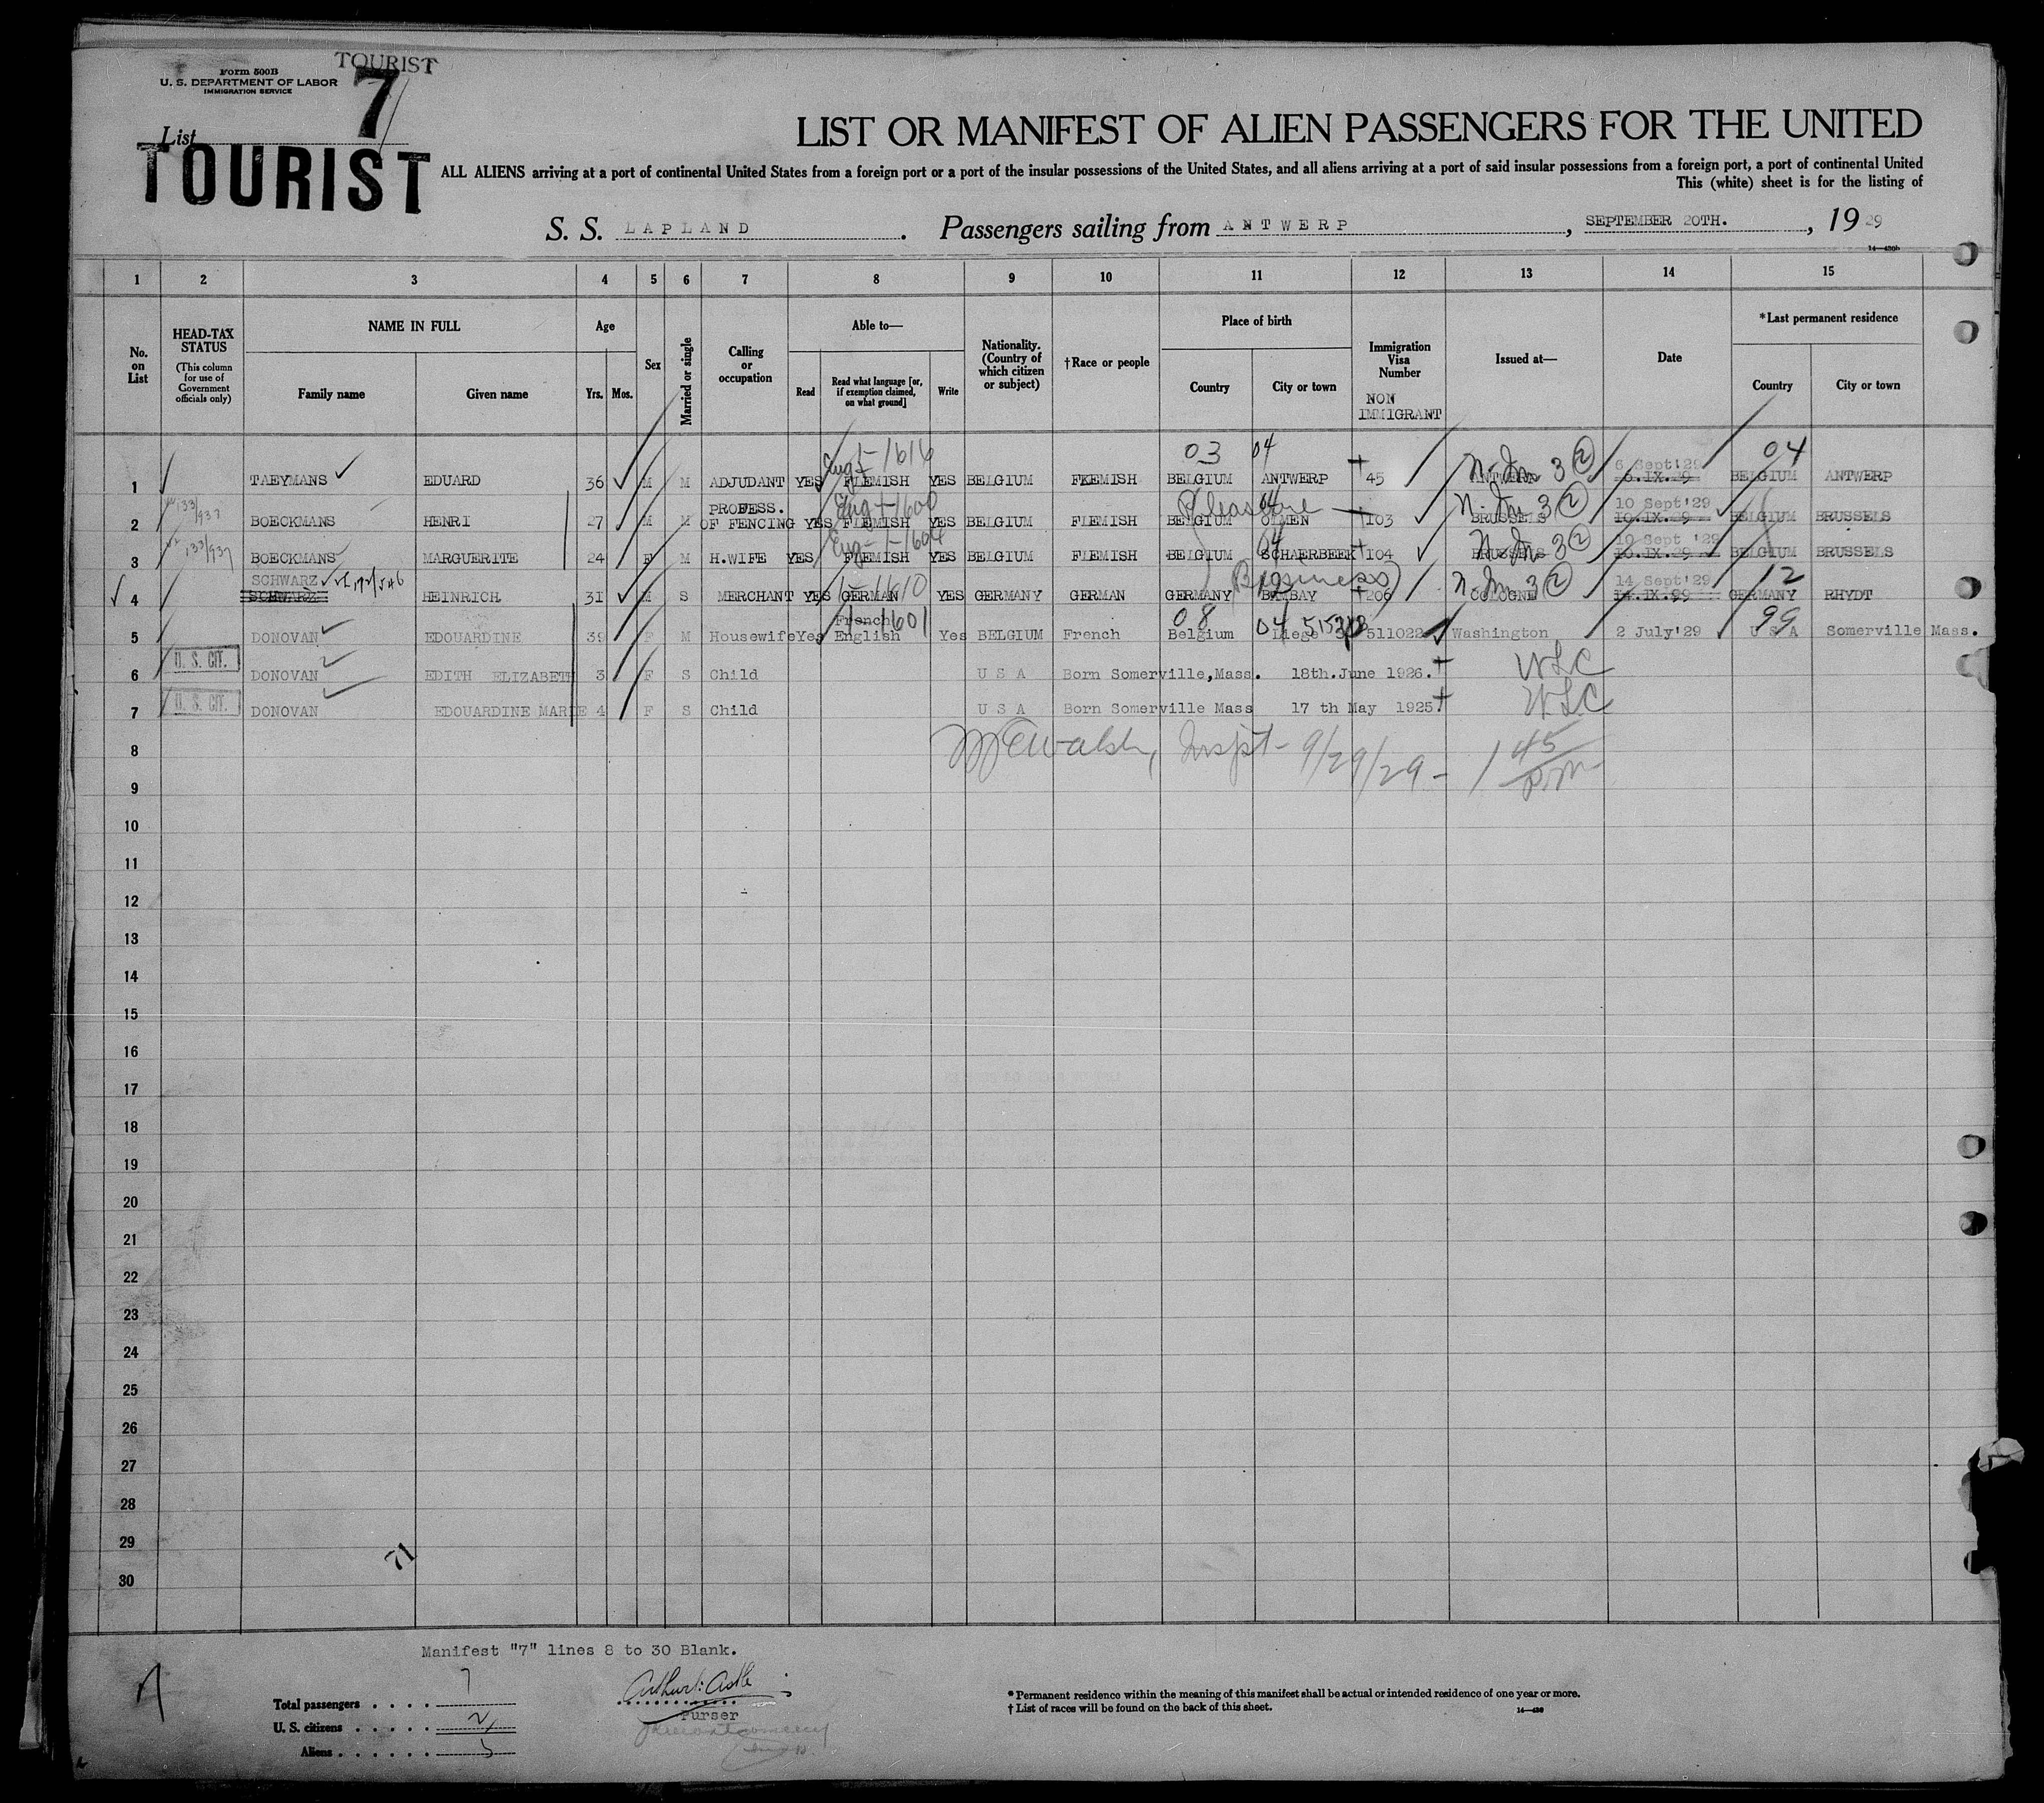 TOURIST
Form 500B
U. S. DEPARTMENT OF LABOR
IMMIGRATION SERVICE
List 7
TOURIST
LIST OR MANIFEST OF ALIEN PASSENGERS FOR THE UNITED
ALL ALIENS arriving at a port of continental United States from a foreign port or a port of the insular possessions of the United States, and all aliens arriving at a port of said insular possessions from a foreign port, a port of continental United
This (white) sheet is for the listing of
S. S. LAPLAND. Passengers sailing from ANTWERP, SEPTEMBER 20TH., 1929
14—430b
1 2 3 4 5 6 7 8 9 10 11 12 13 14 15
No. on List
HEAD-TAX STATUS (This column for use of Government officials only)
NAME IN FULL
Family name Given name
Age
Yrs. Mos.
Sex
Married or single
Calling or occupation
Able to—
Read
Read what language [or, if exemption claimed, on what ground]
Write
Nationality. (Country of which citizen or subject)
†Race or people
Place of birth
Country City or town
Immigration Visa Number
NON IMMIGRANT
Issued at—
Date
*Last permanent residence
Country City or town
Eng 1-1616 03 04 N. Im 3 (2) 6 Sept'29 04
1 TAEYMANS EDUARD 36 M M ADJUDANT YES FLEMISH YES BELGIUM FLEMISH BELGIUM ANTWERP 45 ANTWERP 6.IX.29 BELGIUM ANTWERP
133/937 PROFESS. Eng 1-1600 Pleasure 04 N. Im 3 (2) 10 Sept'29
2 BOECKMANS HENRI 27 M M OF FENCING YES FLEMISH YES BELGIUM FLEMISH BELGIUM OLMEN 103 BRUSSELS 10.IX.29 BELGIUM BRUSSELS
133/937 Eng 1-1604 04 N. Im 3 (2) 10 Sept '29
3 BOECKMANS MARGUERITE 24 F M H.WIFE YES FLEMISH YES BELGIUM FLEMISH BELGIUM SCHAERBEEK 104 BRUSSELS 10.IX.29 BELGIUM BRUSSELS
SCHWARZ 1-1610 Business 12 N. Im 3 (2) 14 Sept'29 12
4 SCHWARZ HEINRICH 31 M S MERCHANT YES GERMAN YES GERMANY GERMAN GERMANY 206 COLOGNE 14.IX.29 GERMANY RHYDT
French 1601 08 04 99
5 DONOVAN EDOUARDINE 39 F M Housewife Yes English Yes BELGIUM French Belgium Liege 511022 Washington 2 July'29 U S A Somerville Mass.
U. S. CIT.
6 DONOVAN EDITH ELIZABETH 3 F S Child U S A Born Somerville,Mass. 18th.June 1926. WLC
U. S. CIT.
7 DONOVAN EDOUARDINE MARIE 4 F S Child U S A Born Somerville Mass 17 th May 1925. WLC
8 Walsh, Inspt- 9/29/29 - 1 45 p.m.
9
10
11
12
13
14
15
16
17
18
19
20
21
22
23
24
25
26
27
28
29
30
71
Manifest "7" lines 8 to 30 Blank.
Total passengers . . . . 7
U. S. citizens . . . . . 2
Aliens . . . . . . 5
Purser
* Permanent residence within the meaning of this manifest shall be actual or intended residence of one year or more.
† List of races will be found on the back of this sheet.
14—430